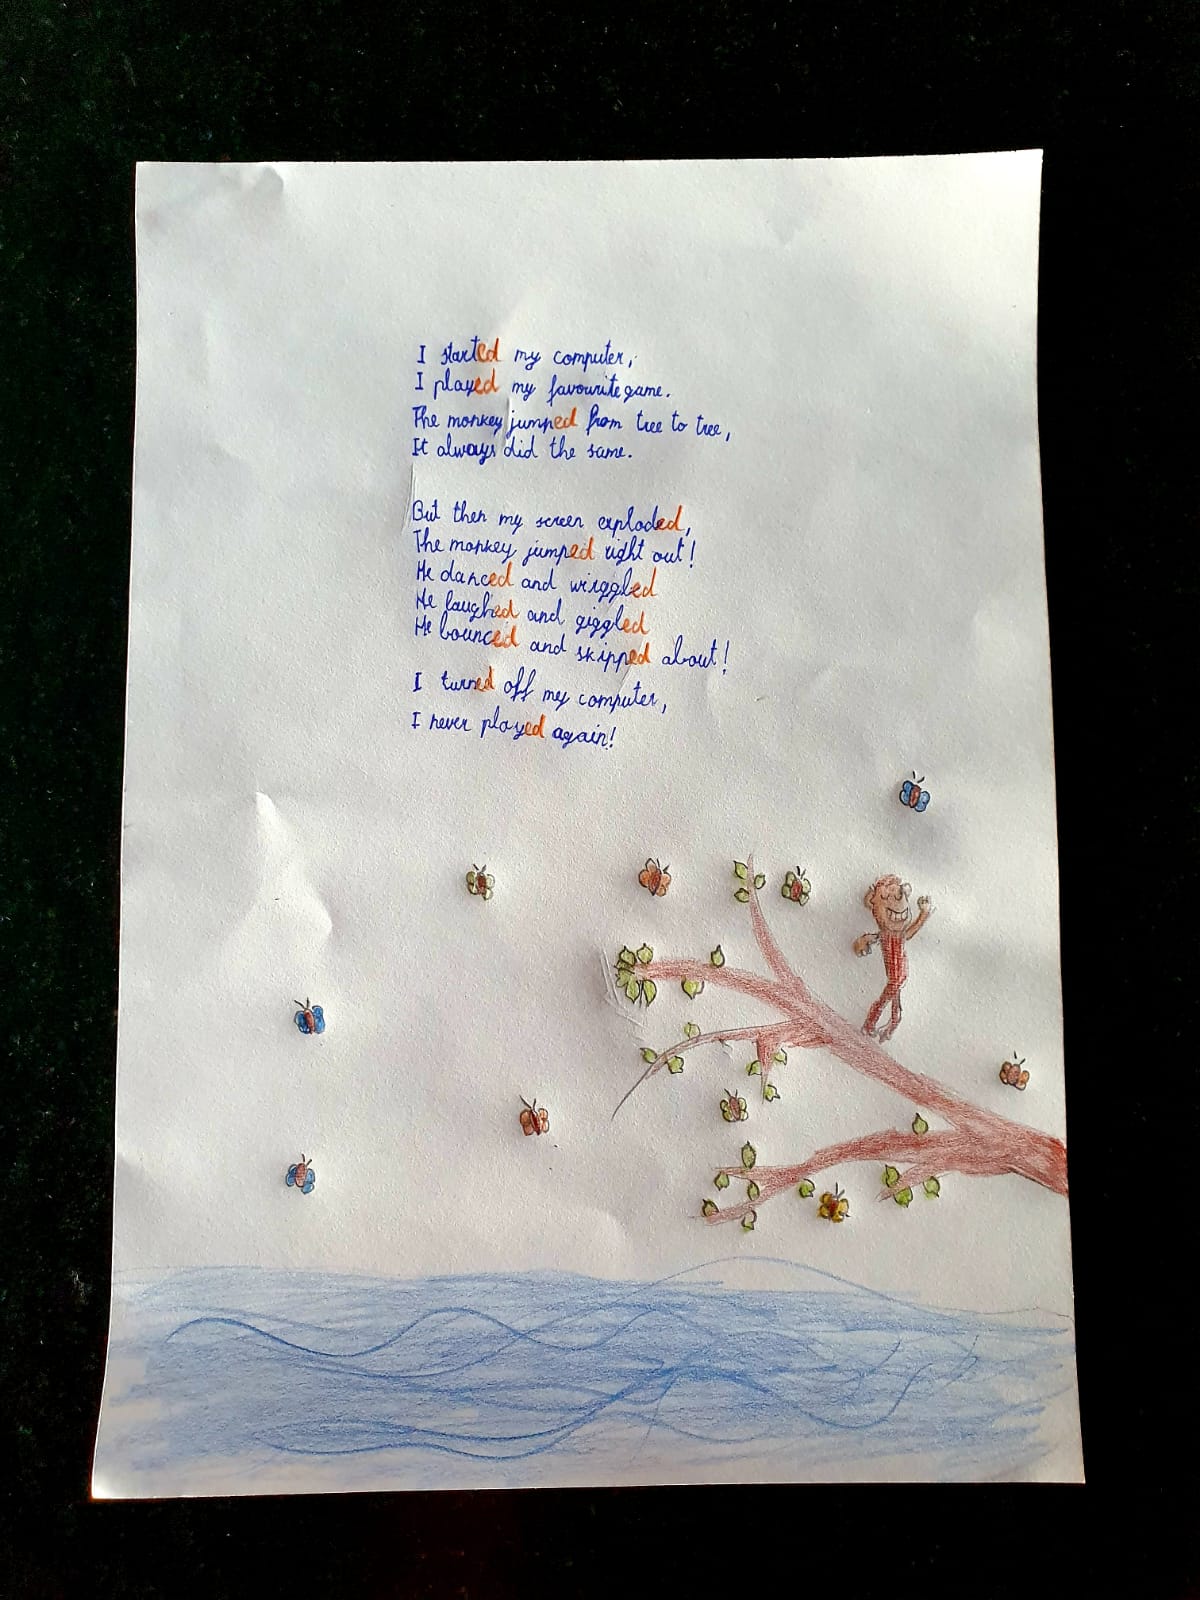 I started my computer,
I played my favourite game.
The monkey jumped from tree to tree,
It always did the same.
But then my screen exploded,
The monkey jumped right out!
He danced and wriggled
He laughed and giggled
He bounced and skipped about!
I turned off my computer,
I never played again!